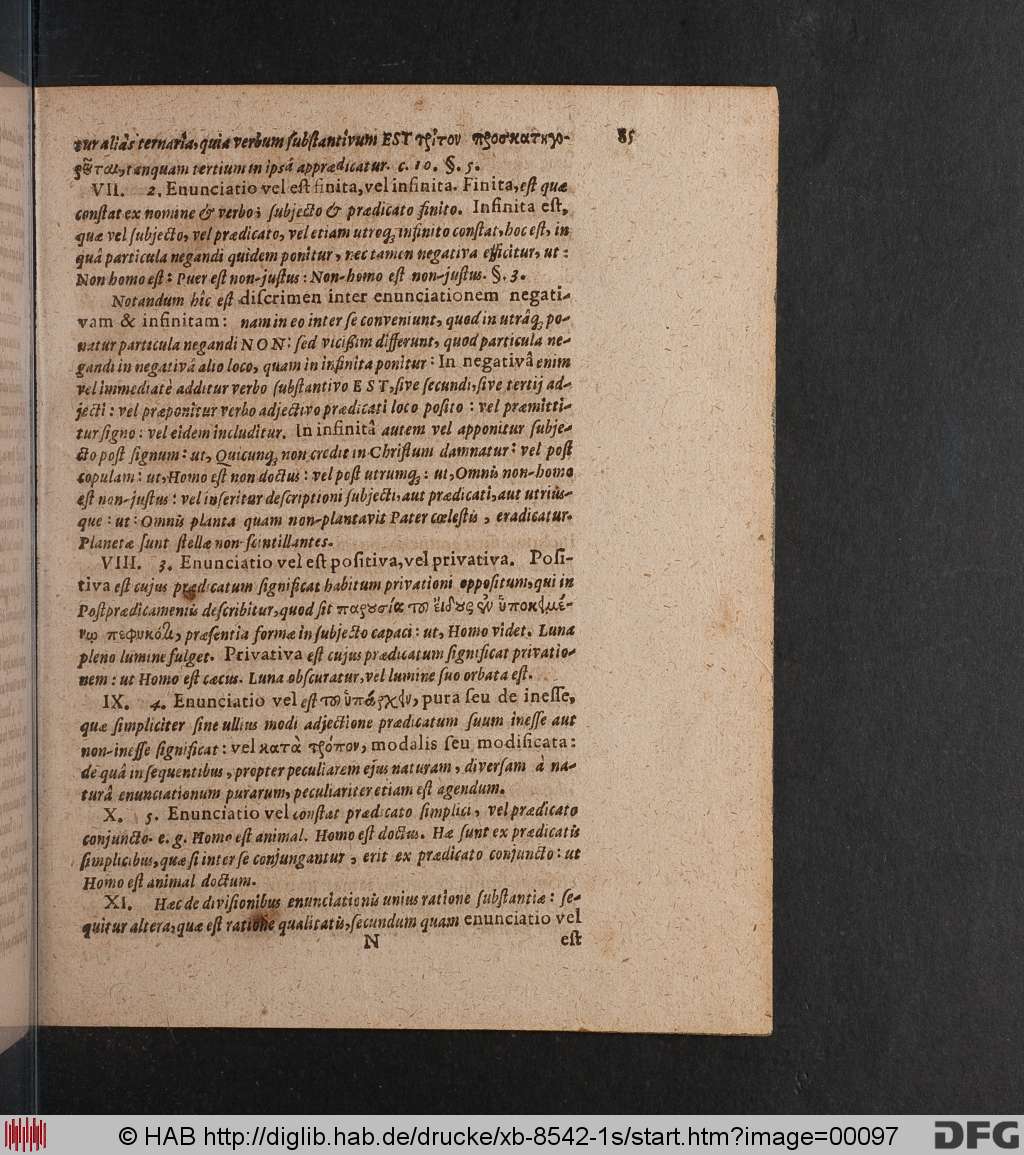 tur aliàs ternaria, quia verbum substantivum EST τρίτον προσκατηγο- 85
ρεῖται, tanquam tertium in ipsâ apprædicatur. c. 10. §. 5.
VII. 2. Enunciatio vel est finita, vel infinita. Finita, est quæ
constat ex nomine & verbo; subjecto & prædicato finito. Infinita est,
quæ vel subjecto, vel prædicato, vel etiam utroq; infinito constat, hoc est, in
quâ particula negandi quidem ponitur, nec tamen negativa efficitur, ut:
Non homo est: Puer est non-justus: Non-homo est non-justus. §. 3.
Notandum hîc est discrimen inter enunciationem negati-
vam & infinitam: nam in eo inter se conveniunt, quod in utrâq; po-
natur particula negandi NON: sed vicißim differunt, quod particula ne-
gandi in negativâ alio loco, quam in infinita ponitur: In negativâ enim
vel immediatè additur verbo substantivo EST, sive secundi, sive tertij ad-
jecti: vel præponitur verbo adjectivo prædicati loco posito: vel præmitti-
tur signo: vel eidem includitur. In infinitâ autem vel apponitur subje-
cto post signum: ut, Quicunq; non credit in Christum damnatur: vel post
copulam: ut, Homo est non doctus: vel post utrumq;: ut, Omnis non-homo
est non-justus: vel inseritur descriptioni subjecti, aut prædicati, aut utrius-
que: ut: Omnis planta quam non-plantavit Pater cœlestis, eradicatur.
Planetæ sunt stellæ non-scintillantes.
VIII. 3. Enunciatio vel est positiva, vel privativa. Posi-
tiva est cujus prædicatum significat habitum privationi oppositum, qui in
Postprædicamentis describitur, quod sit παρουσία τοῦ εἴδους ἐν ὑποκειμέ-
νῳ πεφυκότι, præsentia formæ in subjecto capaci: ut, Homo videt. Luna
pleno lumine fulget. Privativa est cujus prædicatum significat privatio-
nem: ut Homo est cæcus. Luna obscuratur, vel lumine suo orbata est.
IX. 4. Enunciatio vel est τοῦ ὑπάρχειν, pura seu de inesse,
quæ simpliciter sine ullius modi adjectione prædicatum suum inesse aut
non-inesse significat: vel κατὰ τρόπον, modalis seu modificata:
de quâ in sequentibus, propter peculiarem ejus naturam, diversam à na-
turâ enunciationum purarum, peculiariter etiam est agendum.
X. 5. Enunciatio vel constat prædicato simplici, vel prædicato
conjuncto. e. g. Homo est animal. Homo est doctus. Hæ sunt ex prædicatis
simplicibus, quæ si inter se conjungantur, erit ex prædicato conjuncto: ut
Homo est animal doctum.
XI. Hæc de divisionibus enunciationis unius ratione substantiæ: se-
quitur altera, quæ est ratione qualitatis, secundum quam enunciatio vel
N est
© HAB http://diglib.hab.de/drucke/xb-8542-1s/start.htm?image=00097 DFG